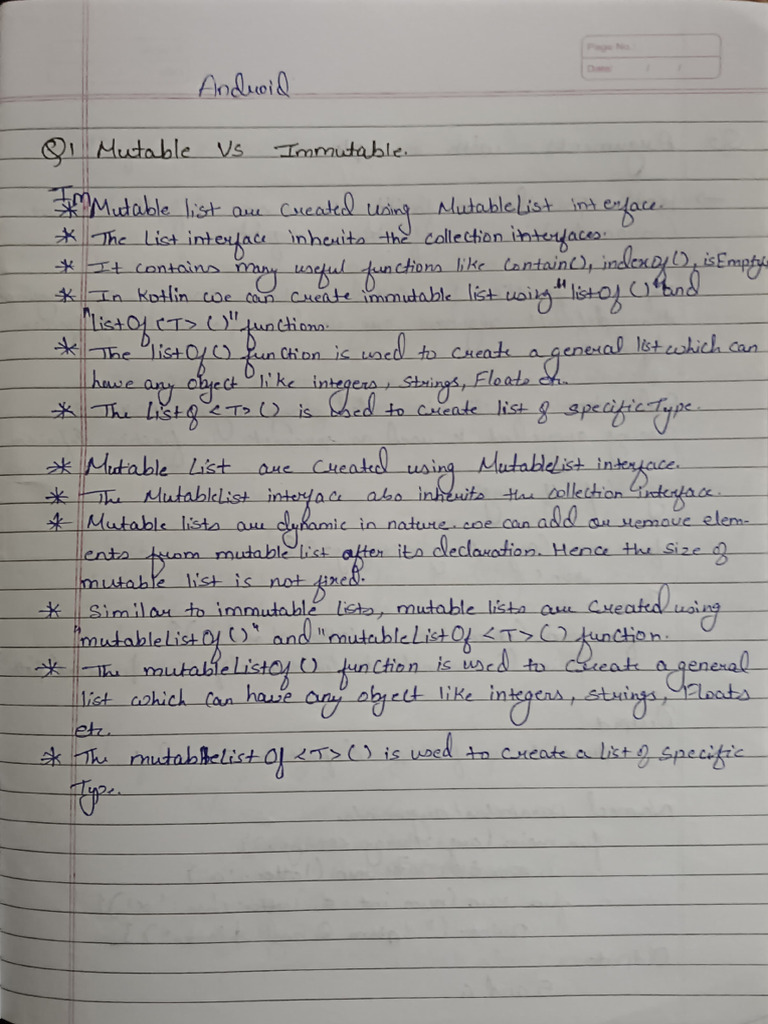 Page No.
Date: / /
Android
Q1 Mutable Vs Immutable.
Im
* Mutable list are created using MutableList interface.
* The List interface inherits the collection interfaces.
* It contains many useful functions like Contain(), indexOf(), isEmpty
* In Kotlin we can create immutable list using "listOf ()" and
"listOf <T> ()" functions.
* The listOf() function is used to create a general list which can
have any object like integers, strings, Floats etc.
* The listof <T> () is used to create list of specific Type.
* Mutable List are created using MutableList interface.
* The MutableList interface also inherits the collection interface.
* Mutable lists are dynamic in nature. we can add or remove elem-
ents from mutable list after its declaration. Hence the size of
mutable list is not fixed.
* Similar to immutable lists, mutable lists are created using
"mutableListOf()" and "mutableListOf <T> () function.
* The mutableListOf() function is used to create a general
list which can have any object like integers, strings, Floats
etc.
* The mutablelist Of <T> () is used to create a list of specific
Type.